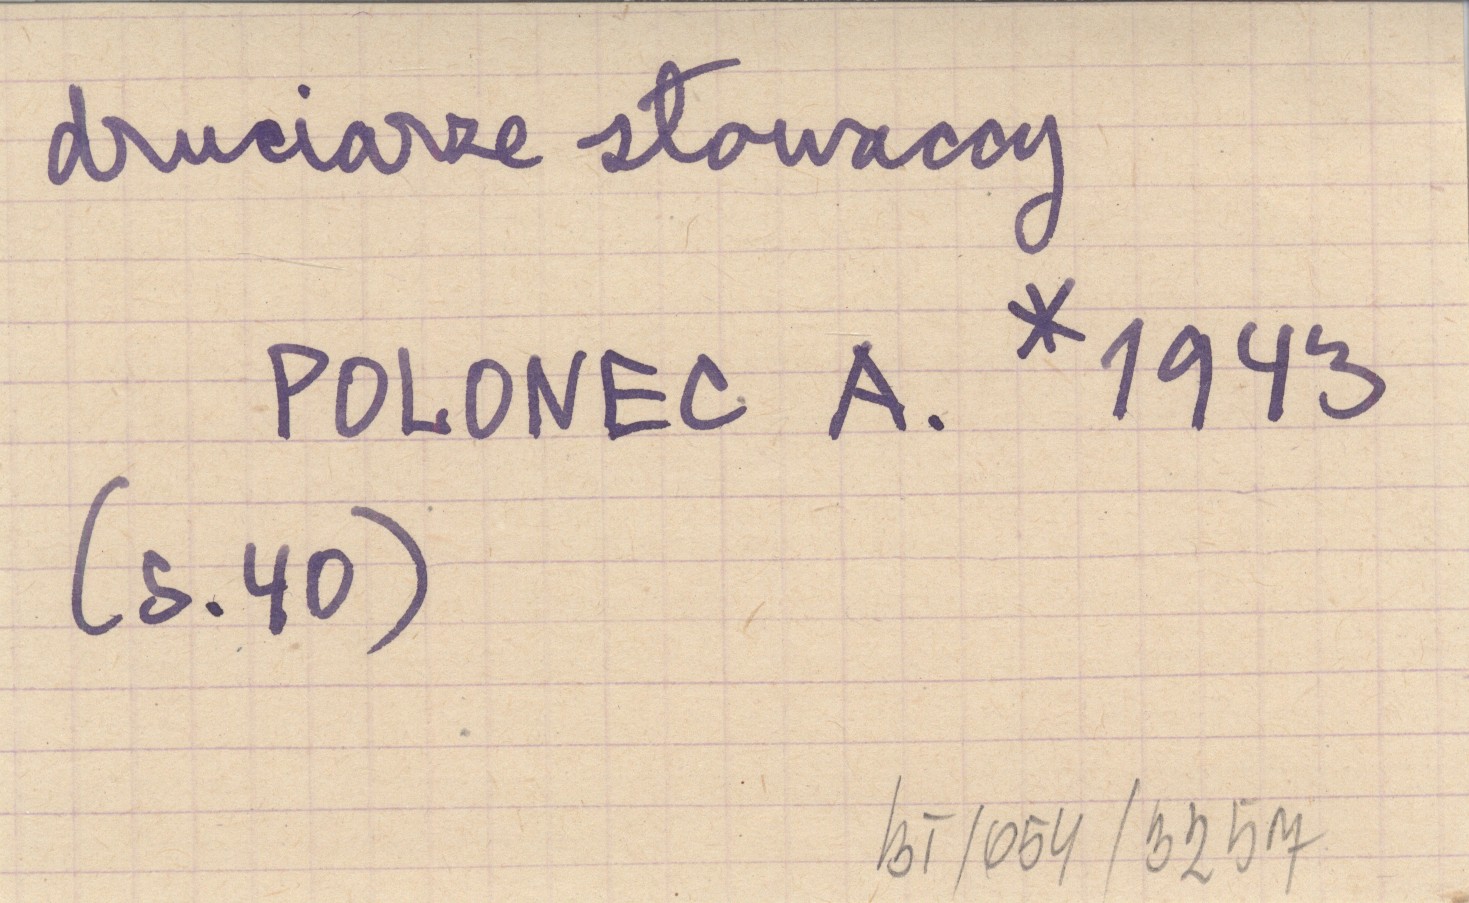 druciarze słowaccy
POLONEC A. *1943
(s.40)
BT/054/3257